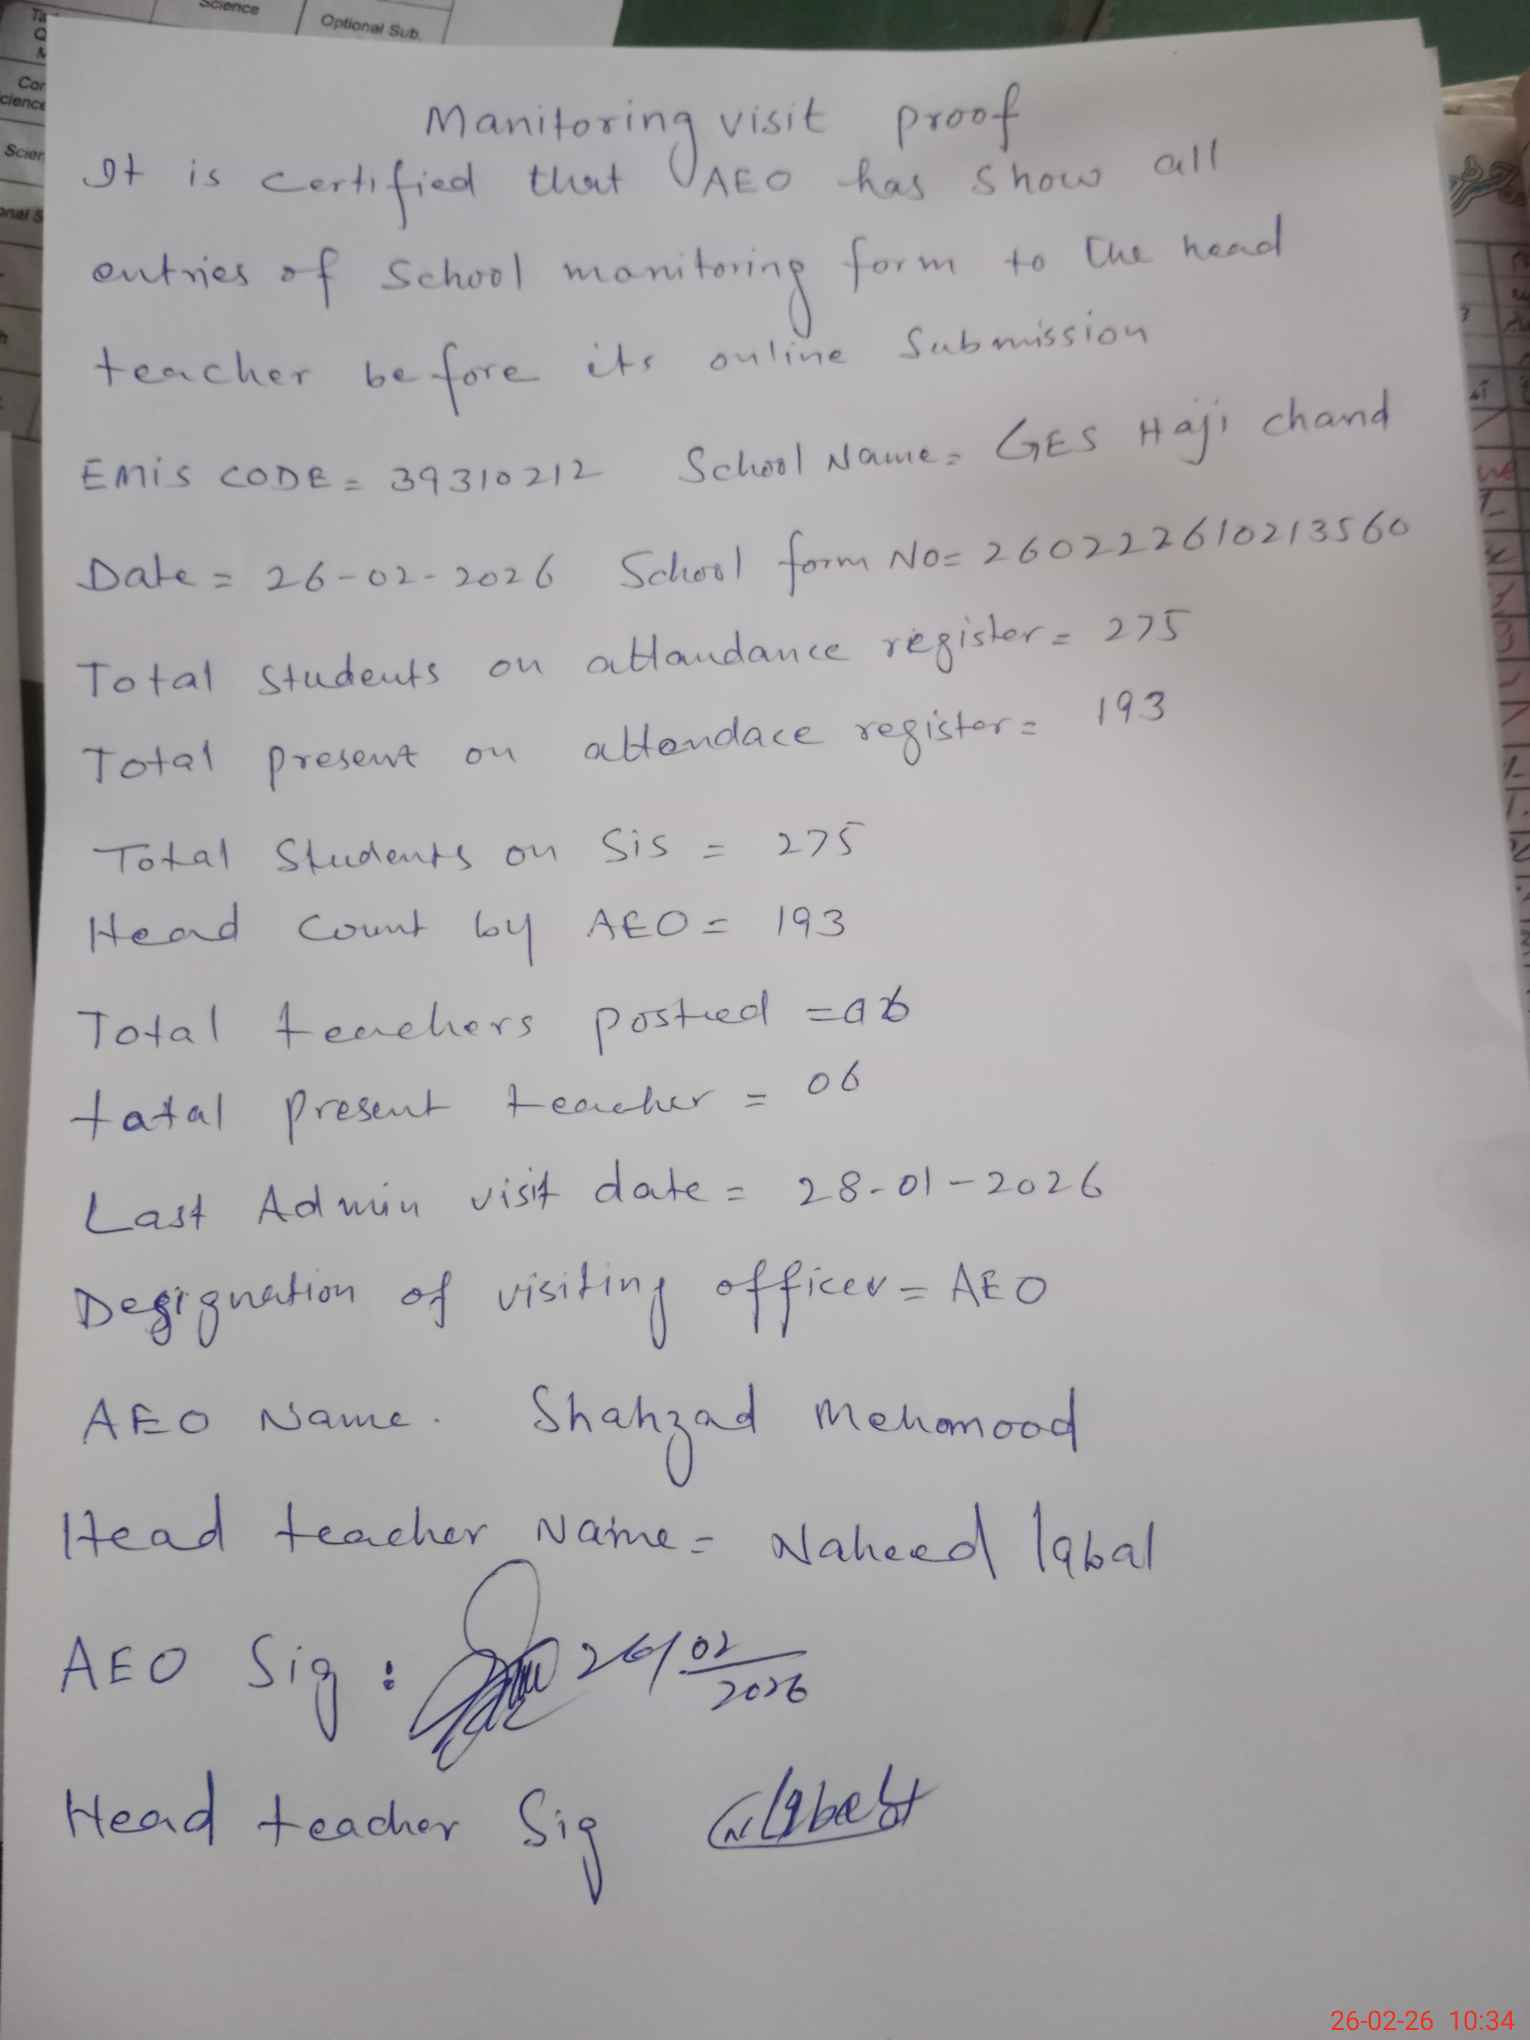 Science
Optional Sub.
Manitoring visit proof
It is certified that AEO has show all
entries of School manitoring form to the head
teacher before its online Submission
EMIS CODE = 39310212 School Name = GES Haji chand
Date = 26-02-2026 School form No= 260222610213560
Total students on attandance register = 275
Total present on attendace register = 193
Total Students on Sis = 275
Head Count by AEO = 193
Total teachers posted = 06
tatal present teacher = 06
Last Admin visit date = 28-01-2026
Designation of visiting officer = AEO
AEO Name. Shahzad Mehmood
Head teacher Name = Naheed Iqbal
AEO Sig : 26/02/2026
Head teacher Sig
26-02-26 10:34